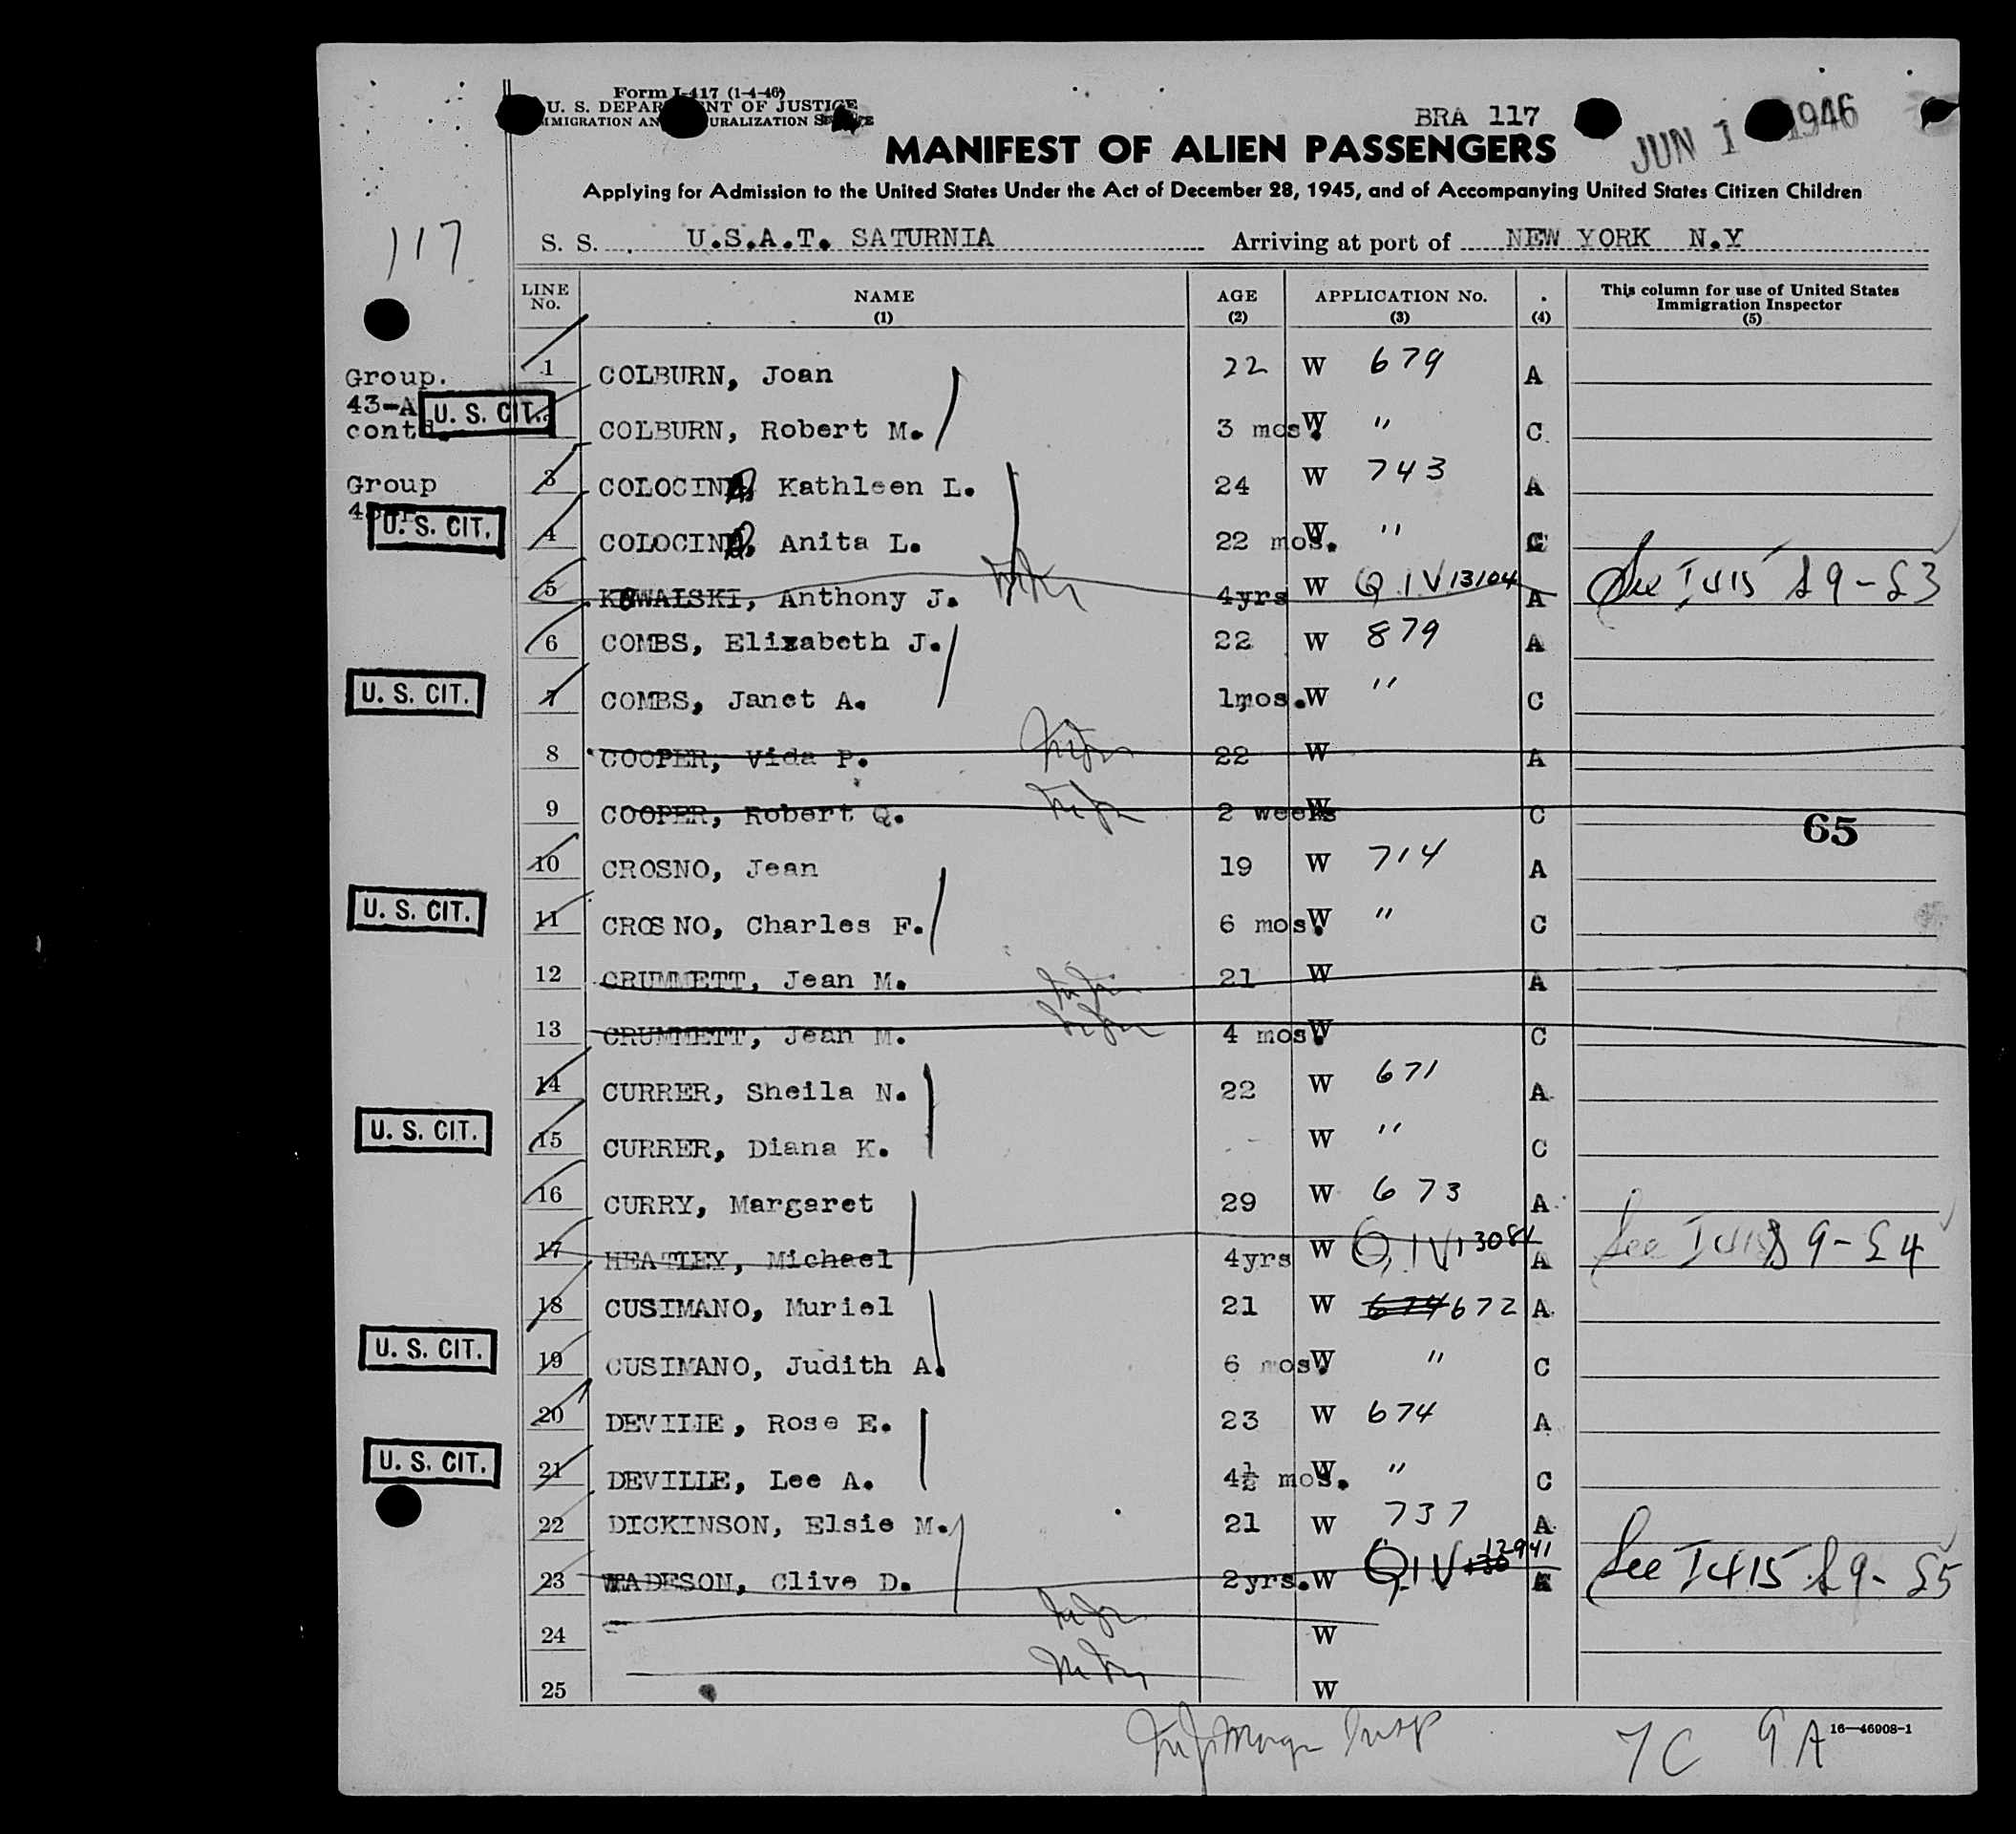 Form I-417 (1-4-46)
U. S. DEPAR NT OF JUSTICE
MIGRATION AN URALIZATION
BRA 117
JUN 1 1946
MANIFEST OF ALIEN PASSENGERS
Applying for Admission to the United States Under the Act of December 28, 1945, and of Accompanying United States Citizen Children
117
S. S. U.S.A.T. SATURNIA Arriving at port of NEW YORK N.Y
LINE No. NAME (1) AGE (2) APPLICATION No. (3) (4) This column for use of United States Immigration Inspector (5)
Group. 1 COLBURN, Joan 22 W 679 A
43-A contd. U. S. CIT. COLBURN, Robert M. 3 mos. W " C
Group 3 COLOCIN Kathleen L. 24 W 743 A
U. S. CIT. 4 COLOCIN Anita L. 22 mos. W " C
5 KOWALSKI, Anthony J. 4yrs W Q IV 13104 A See I 415 S 9 - S3
6 COMBS, Elizabeth J. 22 W 879 A
U. S. CIT. 7 COMBS, Janet A. 1mos. W " C
8 COOPER, Vida P. 22 W A
9 COOPER, Robert Q. 2 weeks W C
65
10 CROSNO, Jean 19 W 714 A
U. S. CIT. 11 CROSNO, Charles F. 6 mos. W " C
12 CRUMMETT, Jean M. 21 W A
13 CRUMMETT, Jean M. 4 mos. W C
14 CURRER, Sheila N. 22 W 671 A
U. S. CIT. 15 CURRER, Diana K. - W " C
16 CURRY, Margaret 29 W 673 A
17 HEATLEY, Michael 4yrs W Q IV A See I 415 S 9 - S4
18 CUSIMANO, Muriel 21 W 674 672 A
U. S. CIT. 19 CUSIMANO, Judith A. 6 mos. W " C
20 DEVILLE, Rose E. 23 W 674 A
U. S. CIT. 21 DEVILLE, Lee A. 4½ mos. W " C
22 DICKINSON, Elsie M. 21 W 737 A
23 WADESON, Clive D. 2yrs. W Q IV 130 12941 A See I 415 S 9 - S5
24 W
25 W
Insp
7C 9A 16—46908-1